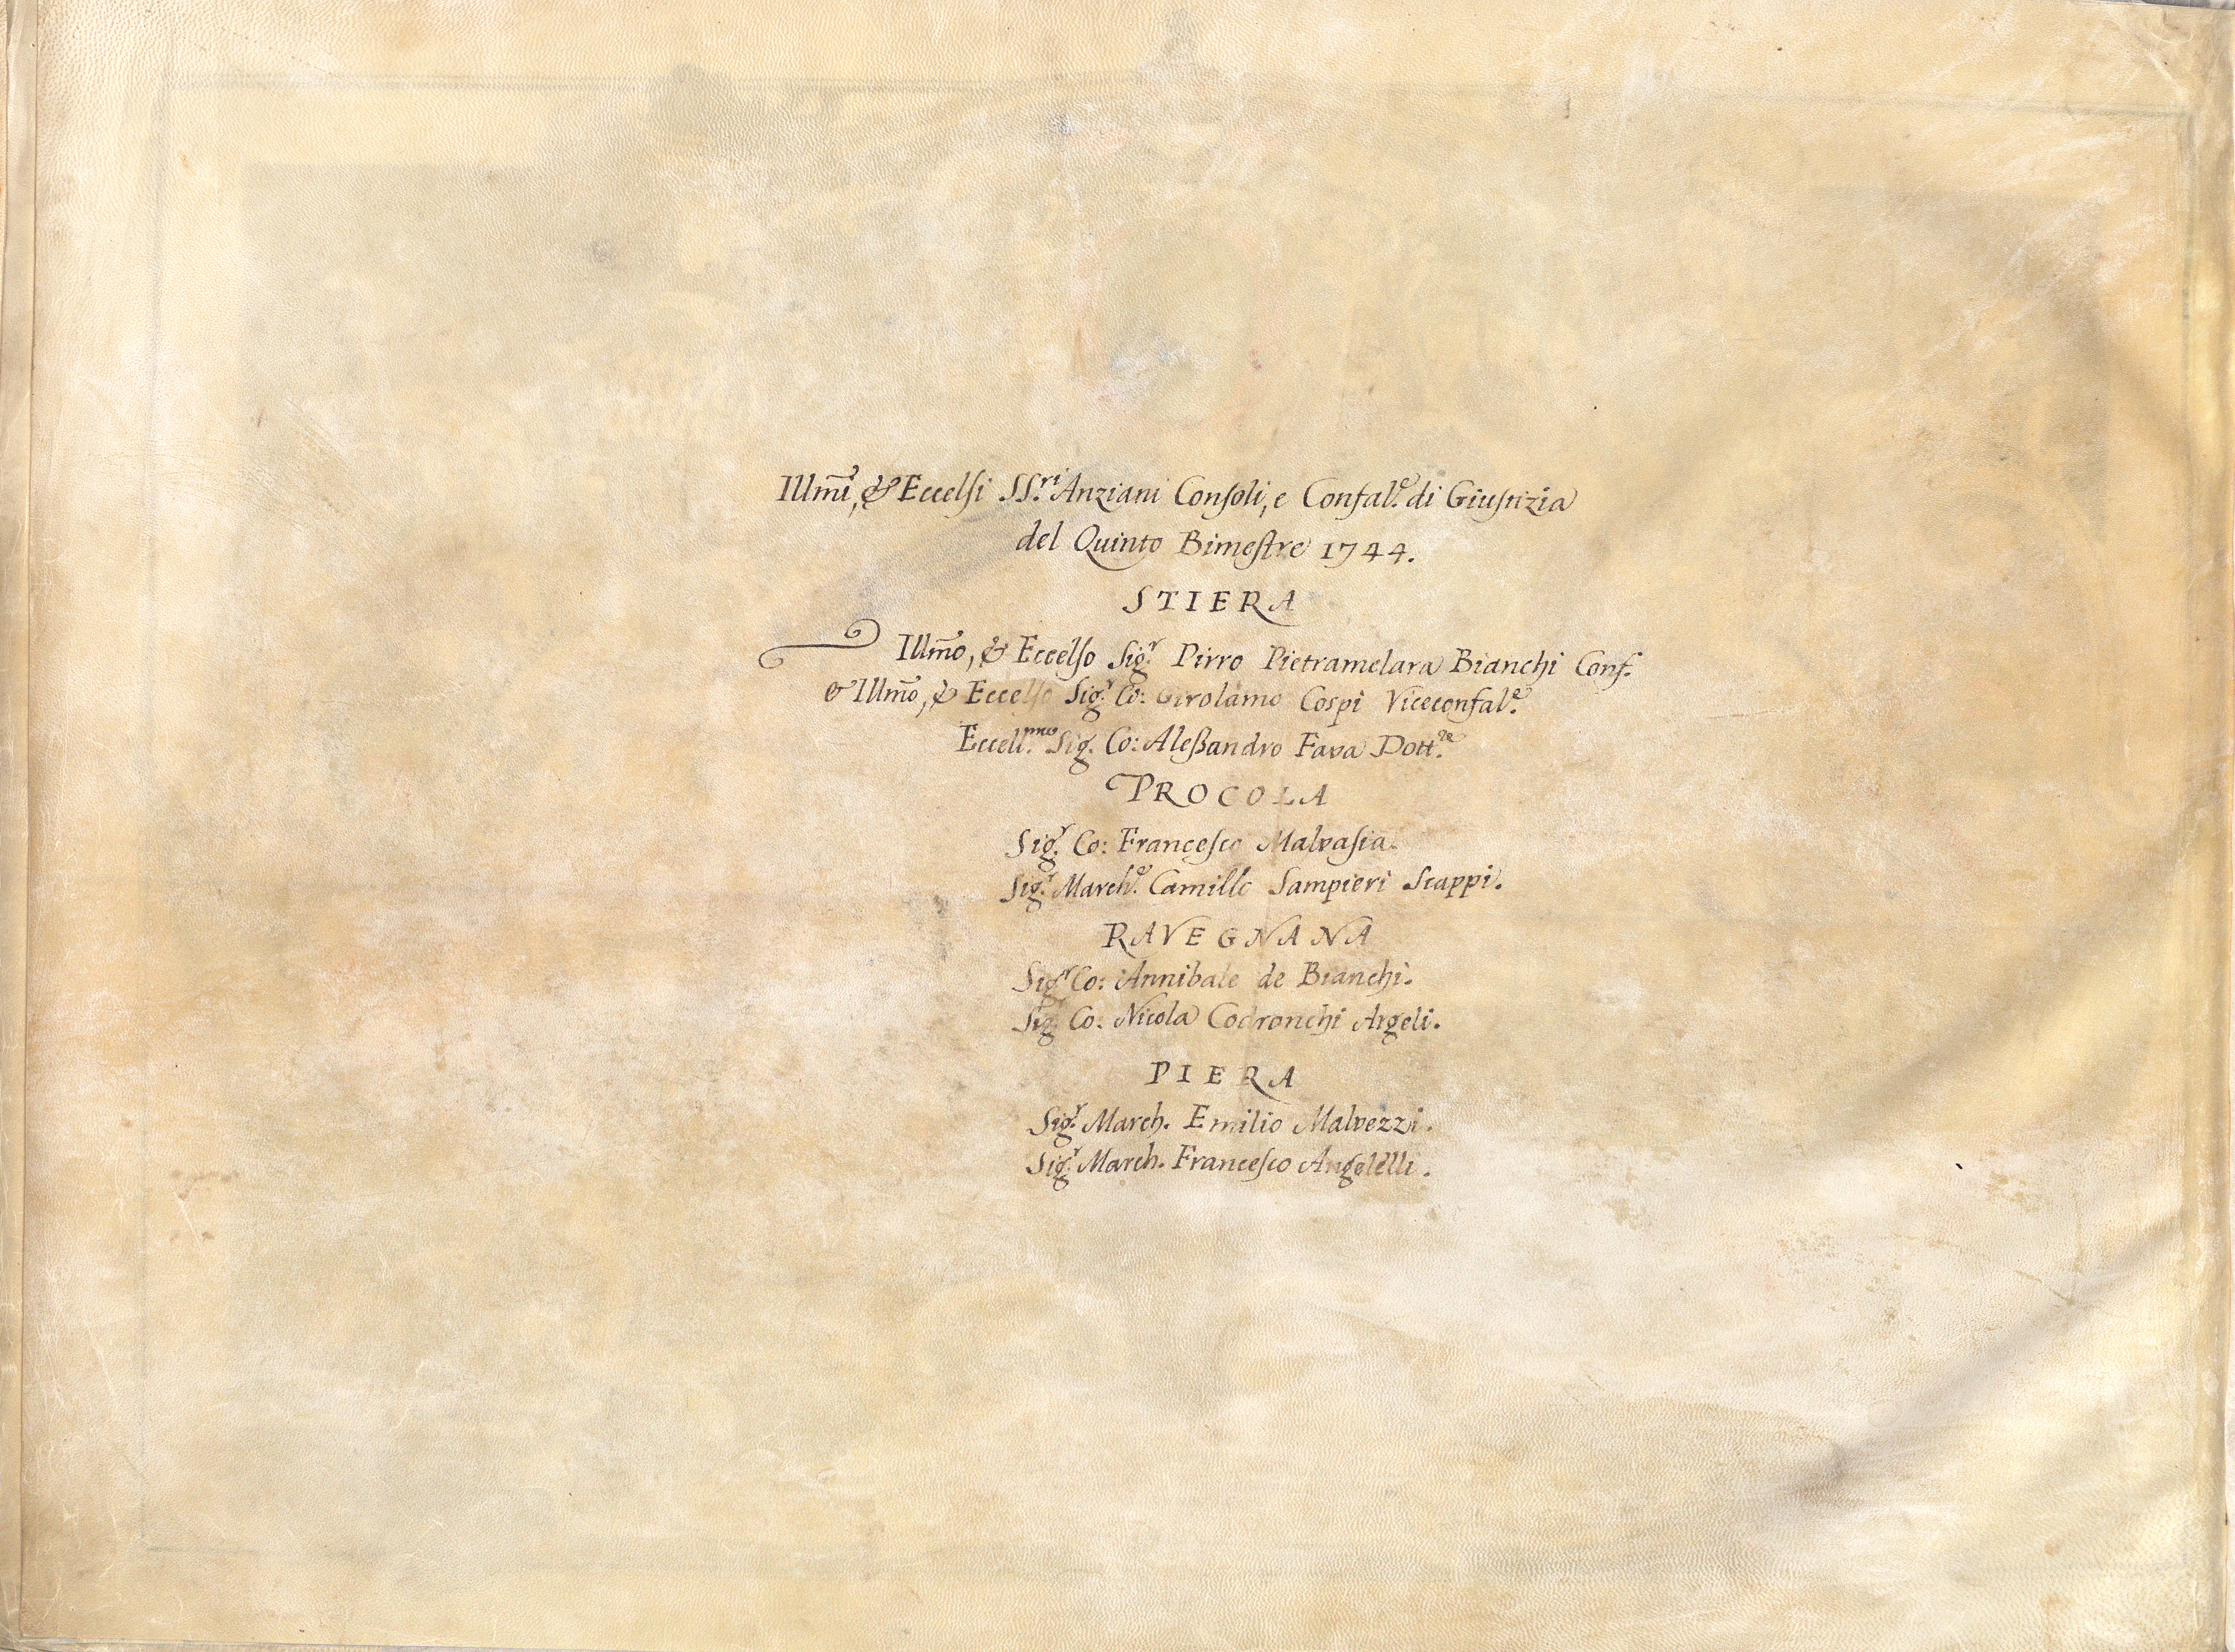 Illm̃i, & Eccelsi SS.ri Anziani Consoli, e Confal.e di Giustizia
del Quinto Bimestre 1744.
STIERA
Illm̃o, & Eccelso Sig.r Pirro Pietramelara Bianchi Conf.
& Illm̃o, & Eccelso Sig.r Co: Girolamo Cospi Viceconfal.e
Eccell.mo Sig. Co: Aleßandro Fava Dott.re
PROCOLA
Sig.r Co: Francesco Malvasia.
Sig.r March.e Camillo Sampieri Scappi.
RAVEGNANA
Sig.r Co: Annibale de Bianchi.
Sig.r Co: Nicola Codronchi Argeli.
PIERA
Sig.r March. Emilio Malvezzi.
Sig.r March. Francesco Angelelli.